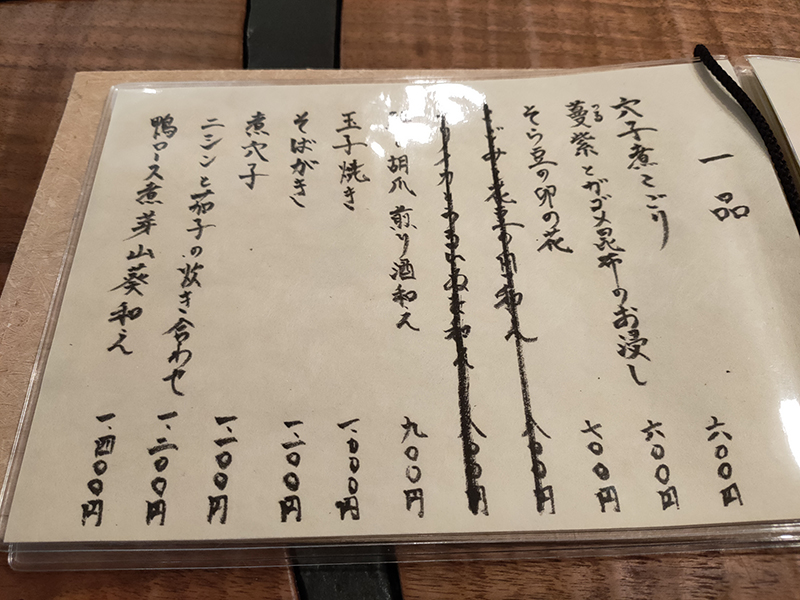 一品
穴子煮こごり 六〇〇円
蔓紫とがゴメ昆布のお浸し 六〇〇円
つる
そら豆の卯の花 七〇〇円
和え 八〇〇円
和え 八〇〇円
胡瓜 煎り酒和え 九〇〇円
玉子焼き 一、〇〇〇円
そばがき 一、一〇〇円
煮穴子 一、一〇〇円
ニシンと茄子の炊き合わせ 一、二〇〇円
鴨ロース煮芽山葵和え 一、四〇〇円